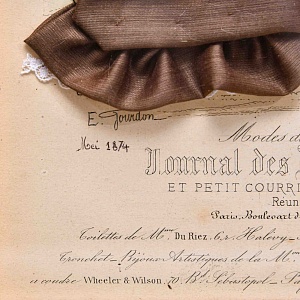 E. Gourdon
Mei 1874
Modes d
Journal des
ET PETIT COURRI
Réun
Paris, Boulevart d
Toilettes de M.me Du Riez, 6, r. Halévy
Bijoux Artistiques de la M.
à coudre Wheeler & Wilson, 70, Bd. Sébastopol